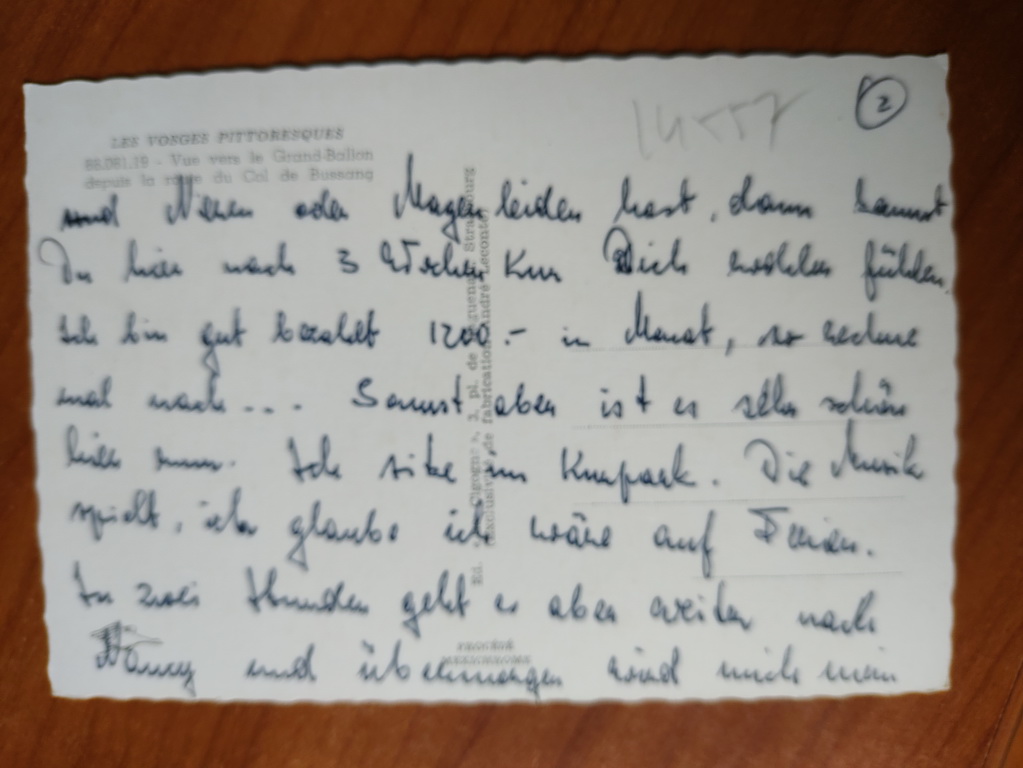 2
14557
LES VOSGES PITTORESQUES
88.081.19 - Vue vers le Grand-Ballon
depuis la route du Col de Bussang
und Nieren oder Magenleiden hast, dann kannst
Du hier nach 3 Wochen Kur Dich wohler fühlen.
Ich bin gut bezahlt 1200.- im Monat, so rechne
mal nach... Sonnst aber ist es sehr schön
hier. Ich sitze im Kurpark. Die Musik
spielt, ich glaube ich wäre auf Ferien.
In zwei Stunden geht es aber weiter nach
Nancy und übermorgen wird mich mein
Ed. "Cigogne", 3, pl. de Haguenau, Strasbourg
exclusivité de fabrication André Leconte
PROCÉDÉ
MEXICHROME